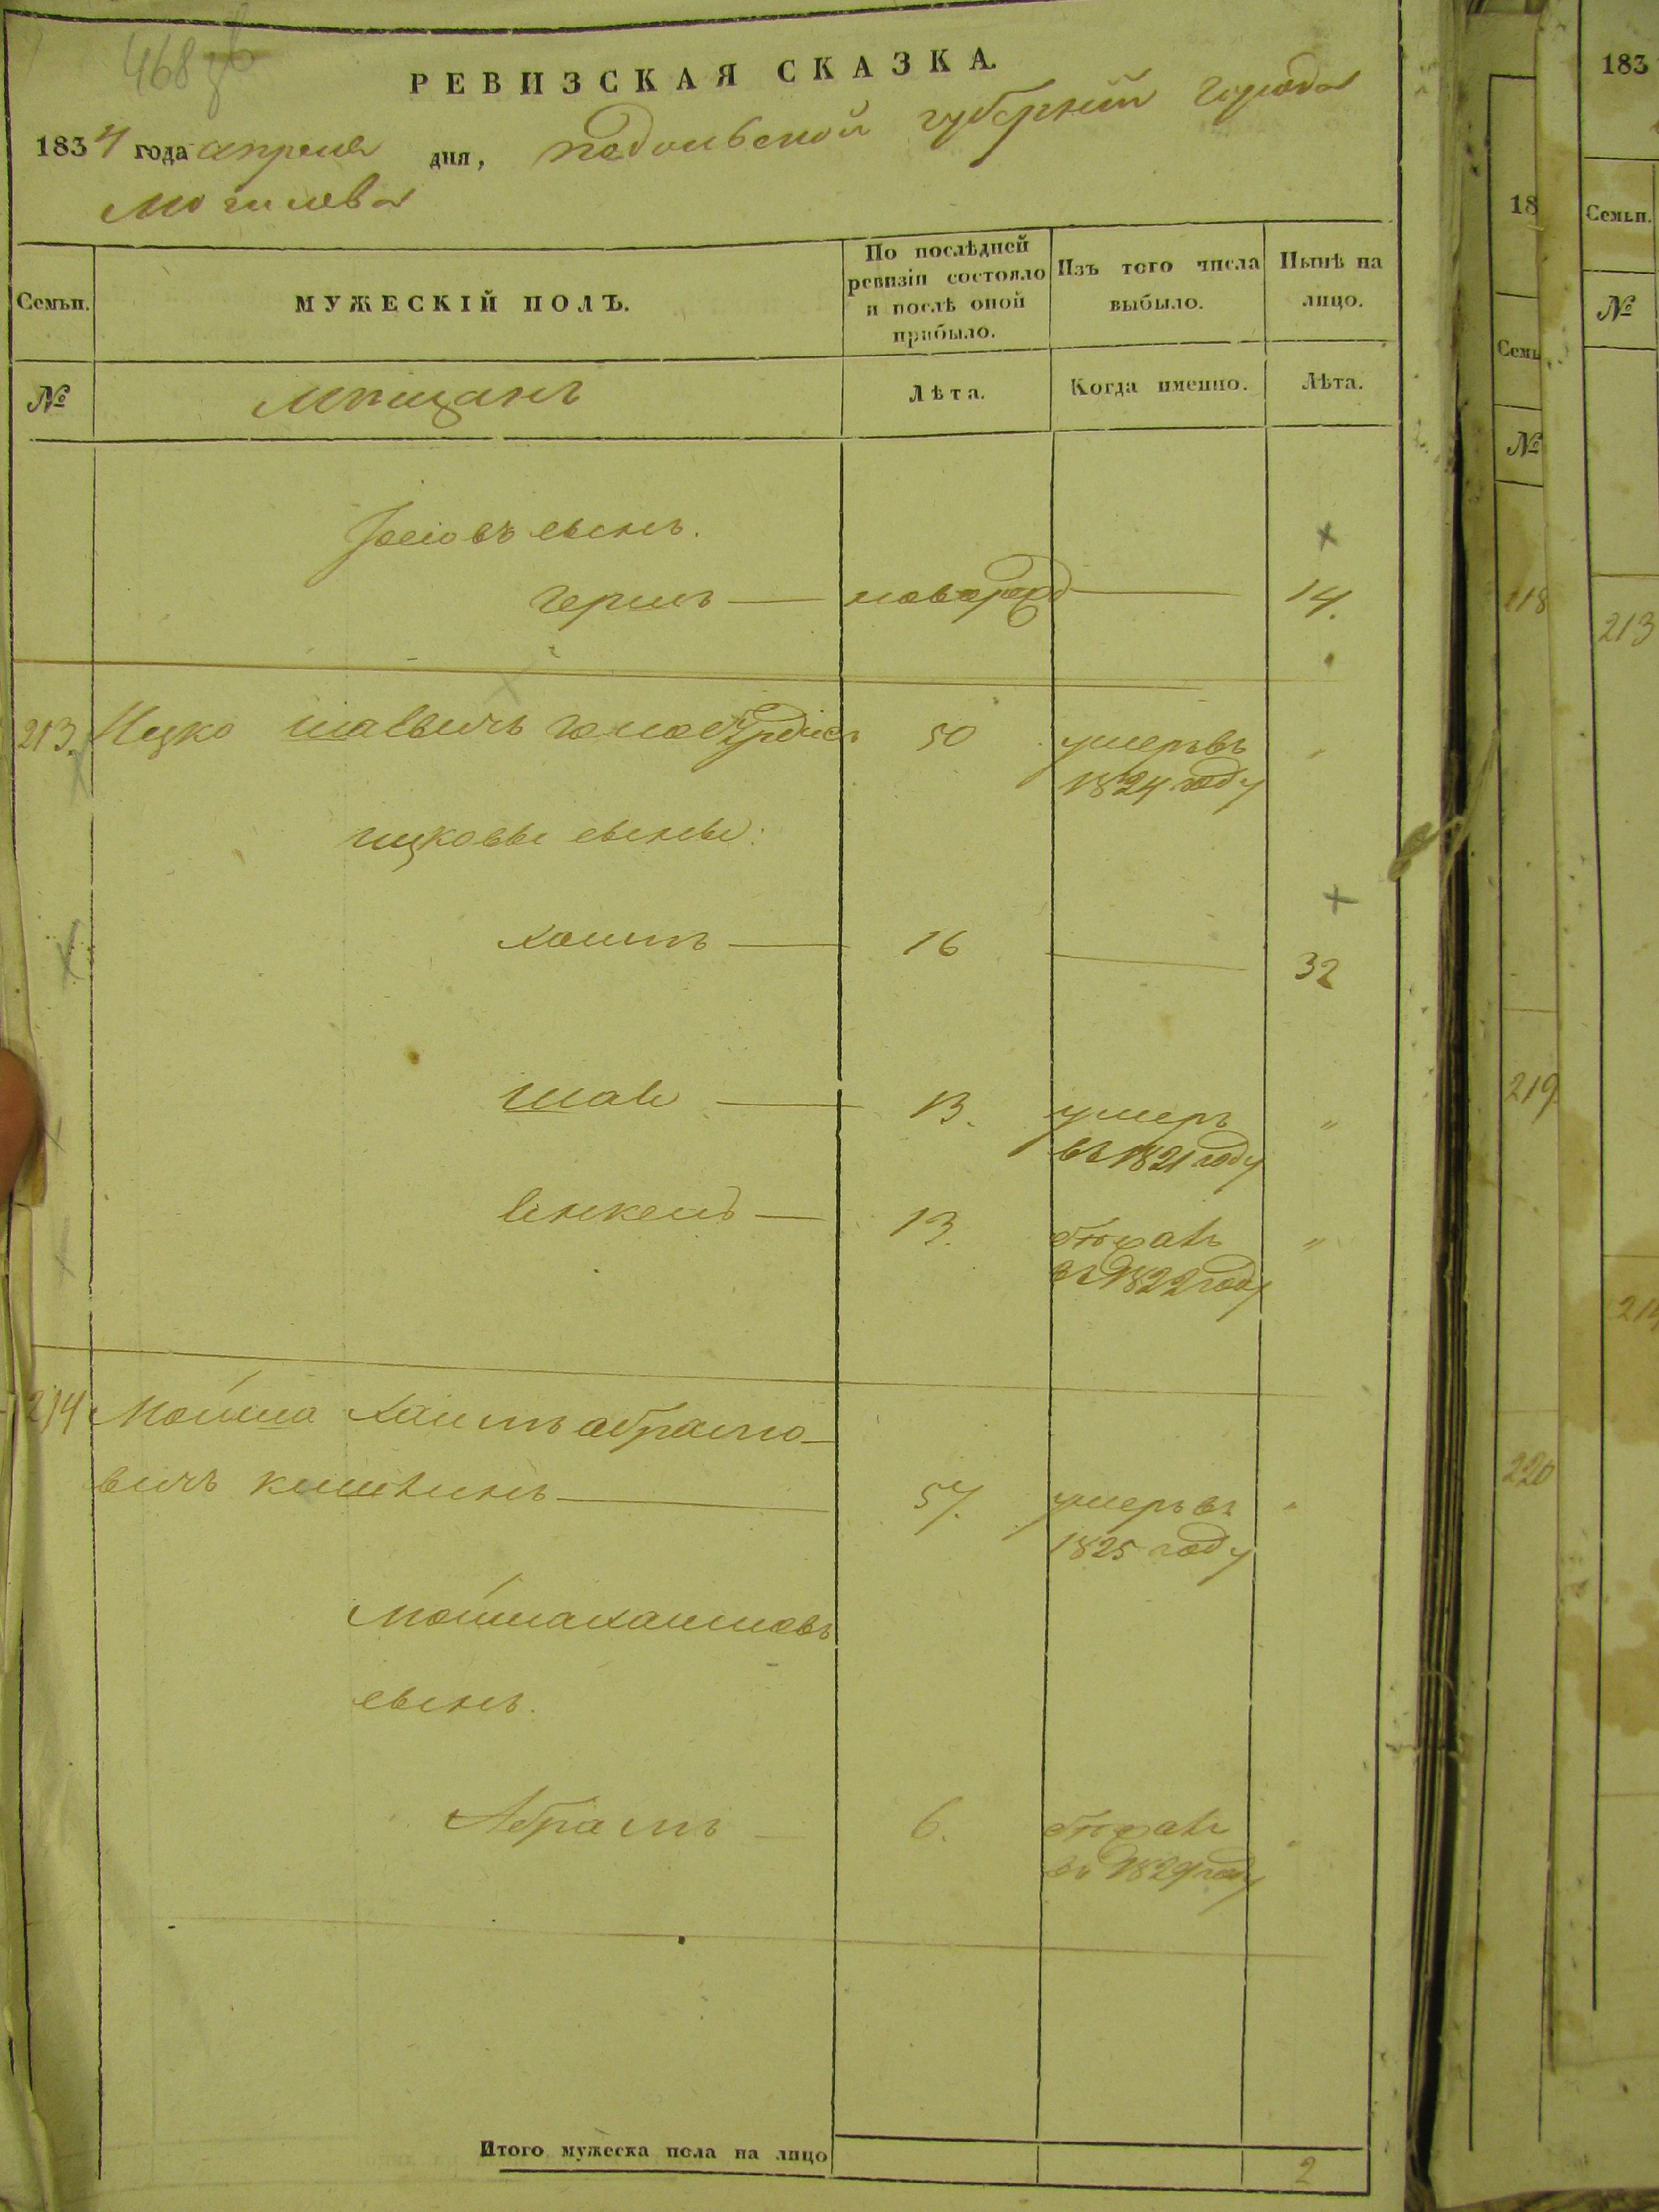 468
РЕВИЗСКАЯ СКАЗКА.
1834 года апреля дня, подольской губерний города
Могилева
Семьи.
МУЖЕСКІЙ ПОЛЪ.
По послѣдней ревизіи состояло и послѣ оной прибыло.
Изъ того числа выбыло.
Нынѣ на лицо.
№
Мѣщанъ
Лѣта.
Когда именно.
Лѣта.
сынъ.
Гершъ — новорожд — 14.
213. Ицко шаевичъ 50 умеръ въ "
1824 году
ицковы сыны:
хаимъ — 16 — 32
шае — 13. умеръ "
въ 1821 году
янкель — 13. бѣжалъ "
въ 1822 году
214 Мошка хаимъ абрамо-
вичъ — 57. умеръ въ "
1825 году
Мошкахаимовъ
сынъ.
Абрамъ — 6. бѣжалъ
въ 1829 году
Итого мужеска пола на лицо 2
183
18
Семьи.
№
Семь
№
218
213
219
214
220